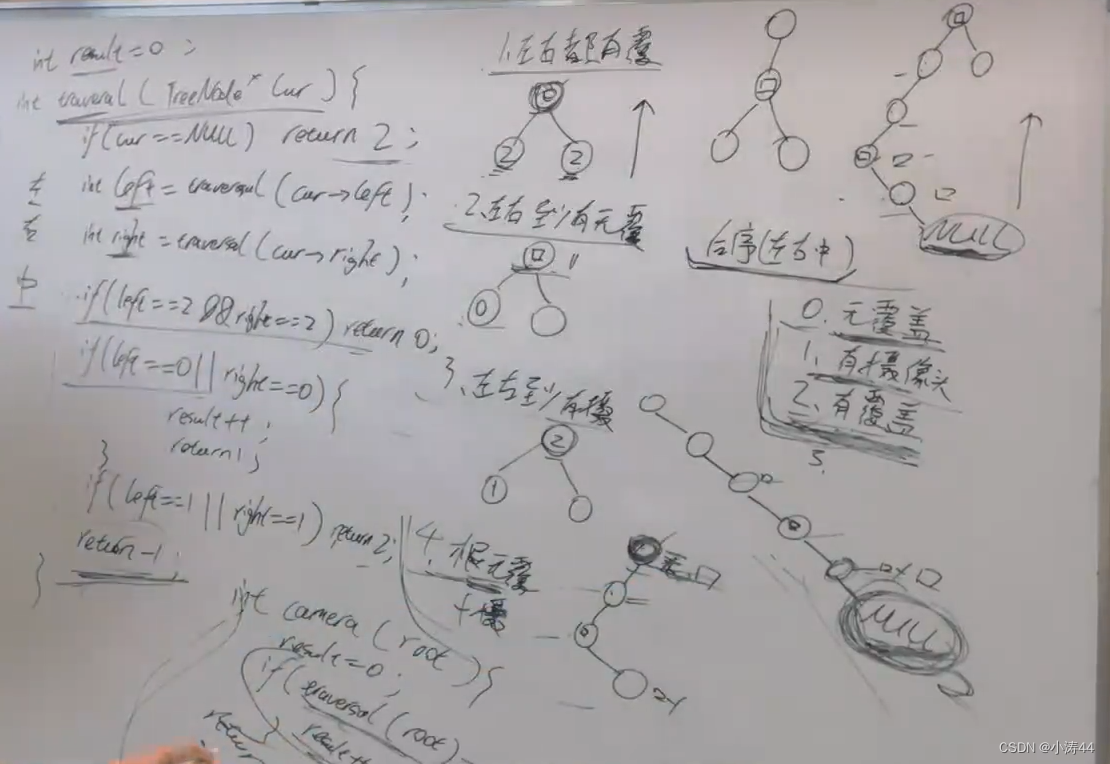 int result=0;
int traversal(TreeNode* cur){
if(cur==NULL) return 2;
左 int left=traversal(cur->left);
右 int right=traversal(cur->right);
中 if(left==2&&right==2) return 0;
if(left==0||right==0){
result++;
return 1;
}
if(left==1||right==1) return 2;
return-1;
}
int camera(root){
result=0;
if(traversal(root)
result++
}
return
1.左右都有覆
2
2
2.左右至少有无覆
0
3.左右至少有摄
2
1
4.根无覆
+摄
无口
NULL
后序(左右中)
0.无覆盖
1.有摄像头
2.有覆盖
3.
NULL
CSDN @小涛44